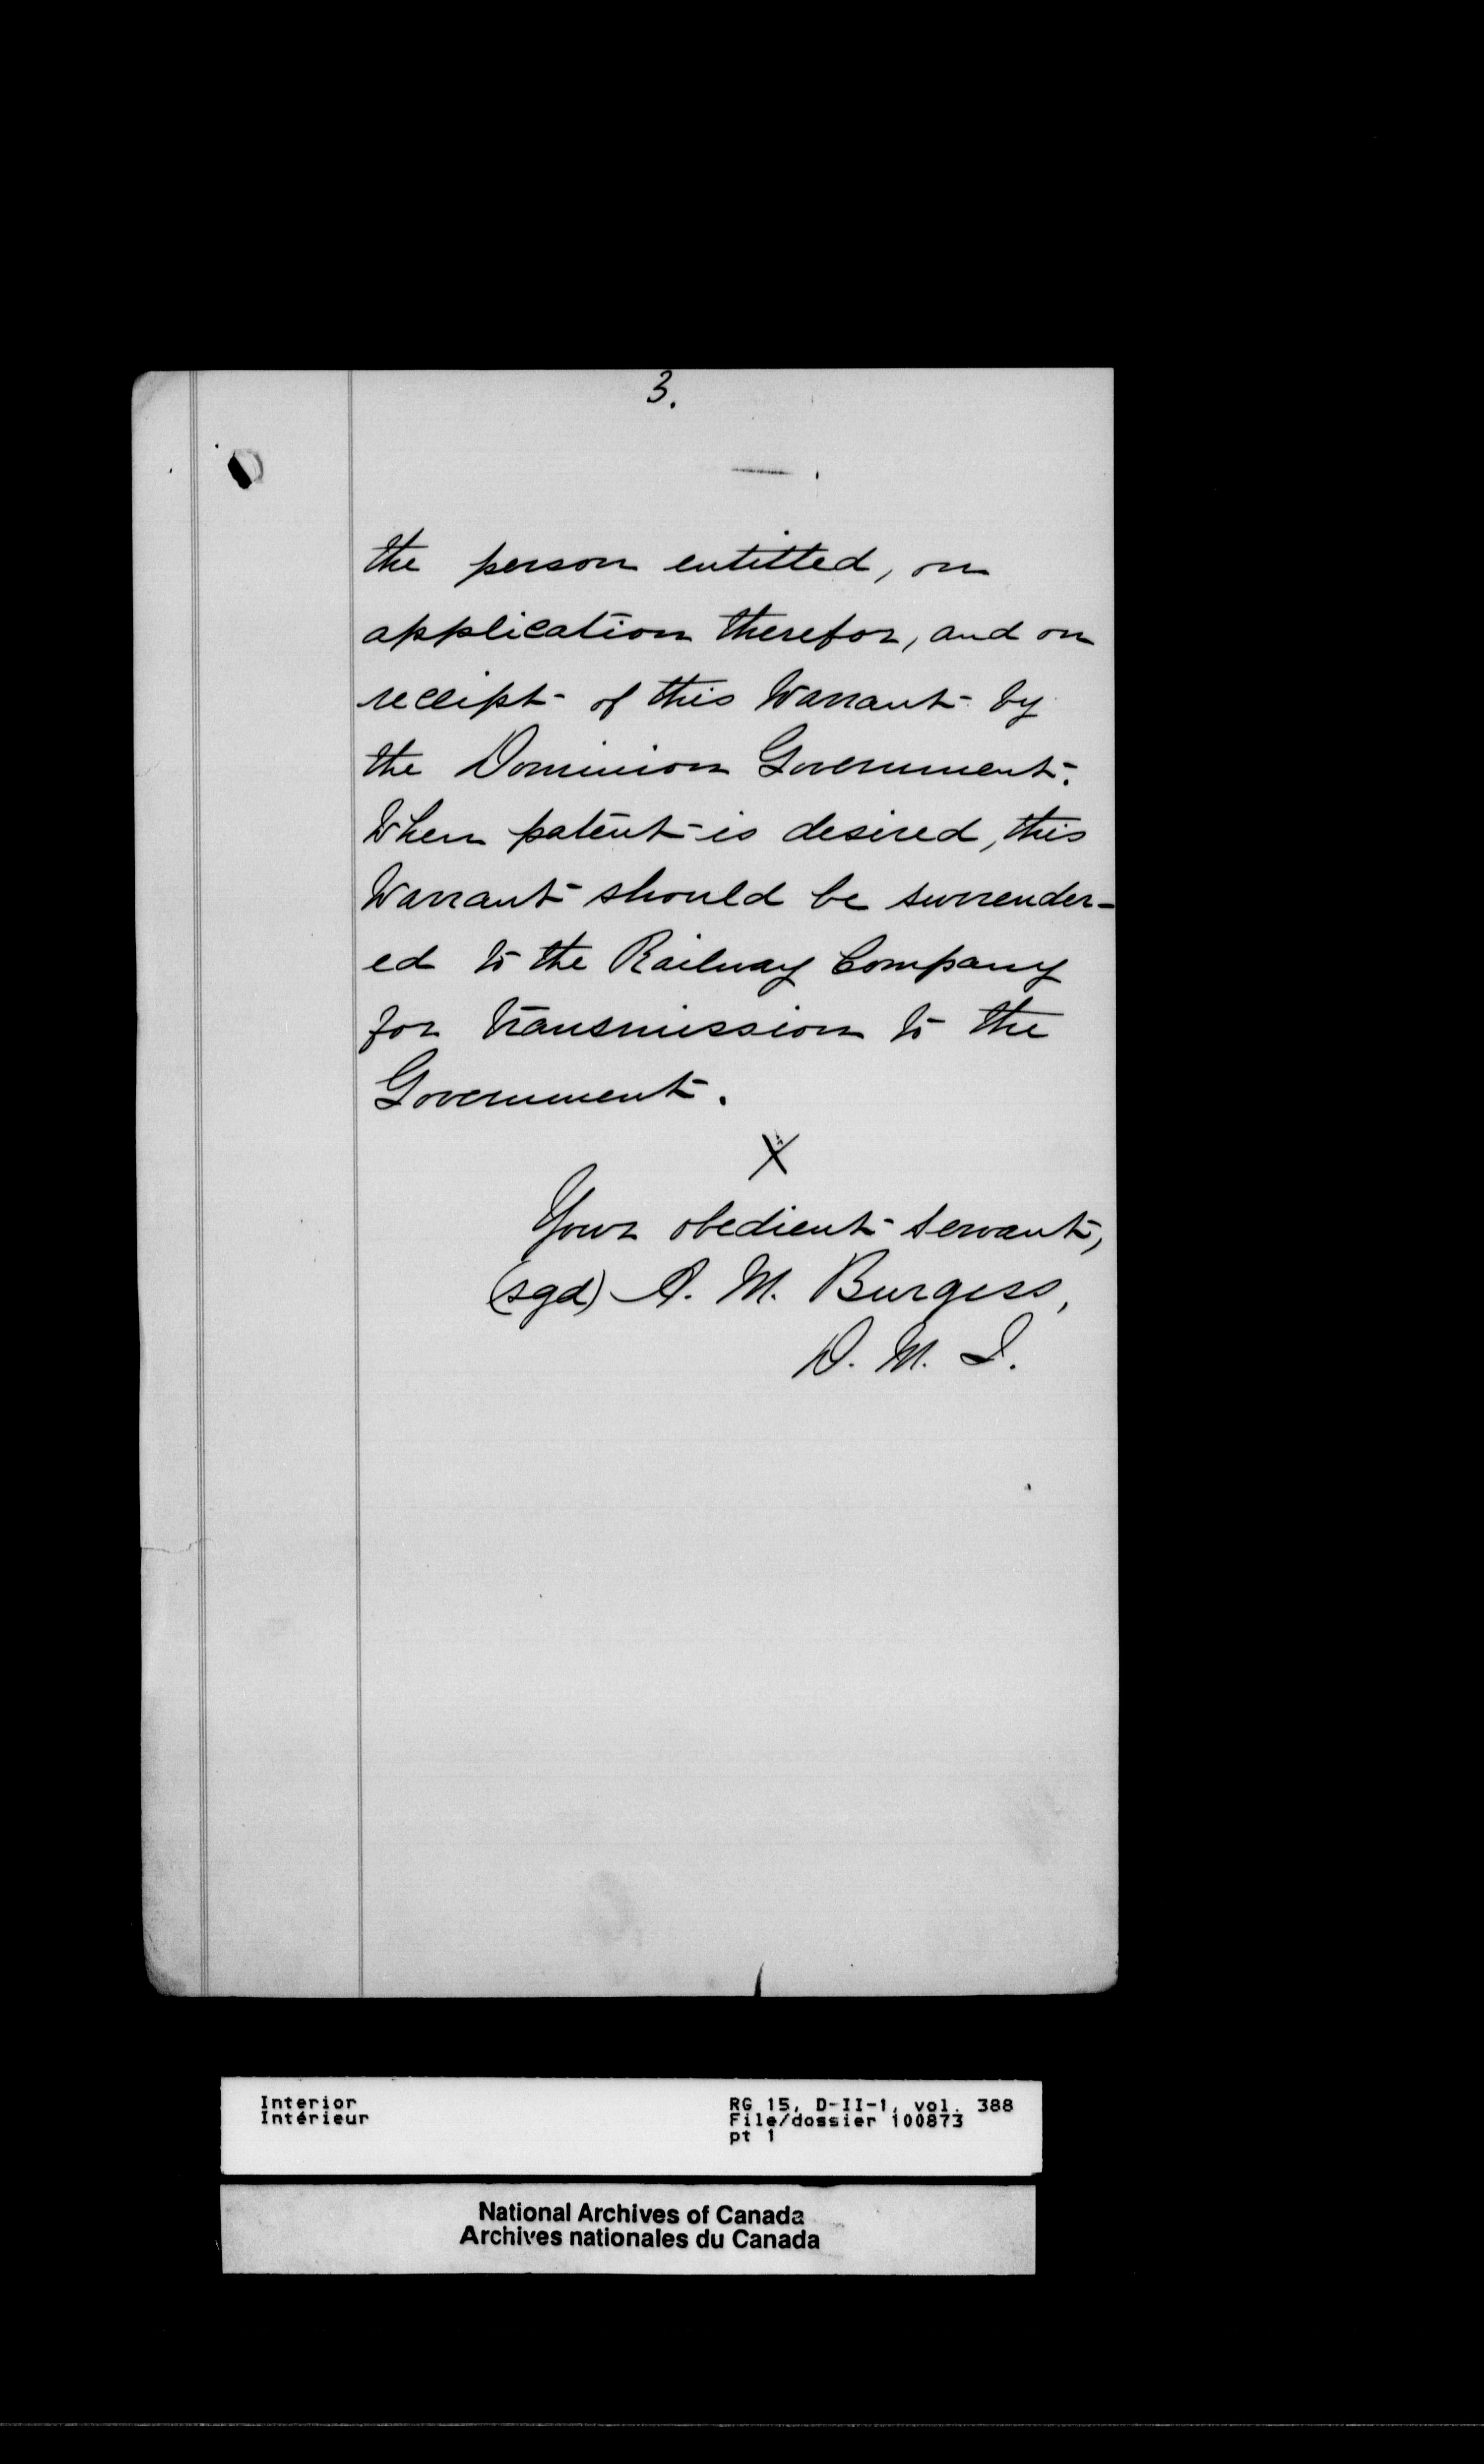 3.
the person entitled, on
application therefor, and on
receipt of this Warrant by
the Dominion Government.
When patent is desired, this
Warrant should be surrender-
ed to the Railway Company
for transmission to the
Government.
X
Your obedient servant,
(sgd) A. M. Burgess,
D. M. I.
Interior
Intérieur
RG 15, D-II-1, vol. 388
File/dossier 100873
pt 1
National Archives of Canada
Archives nationales du Canada